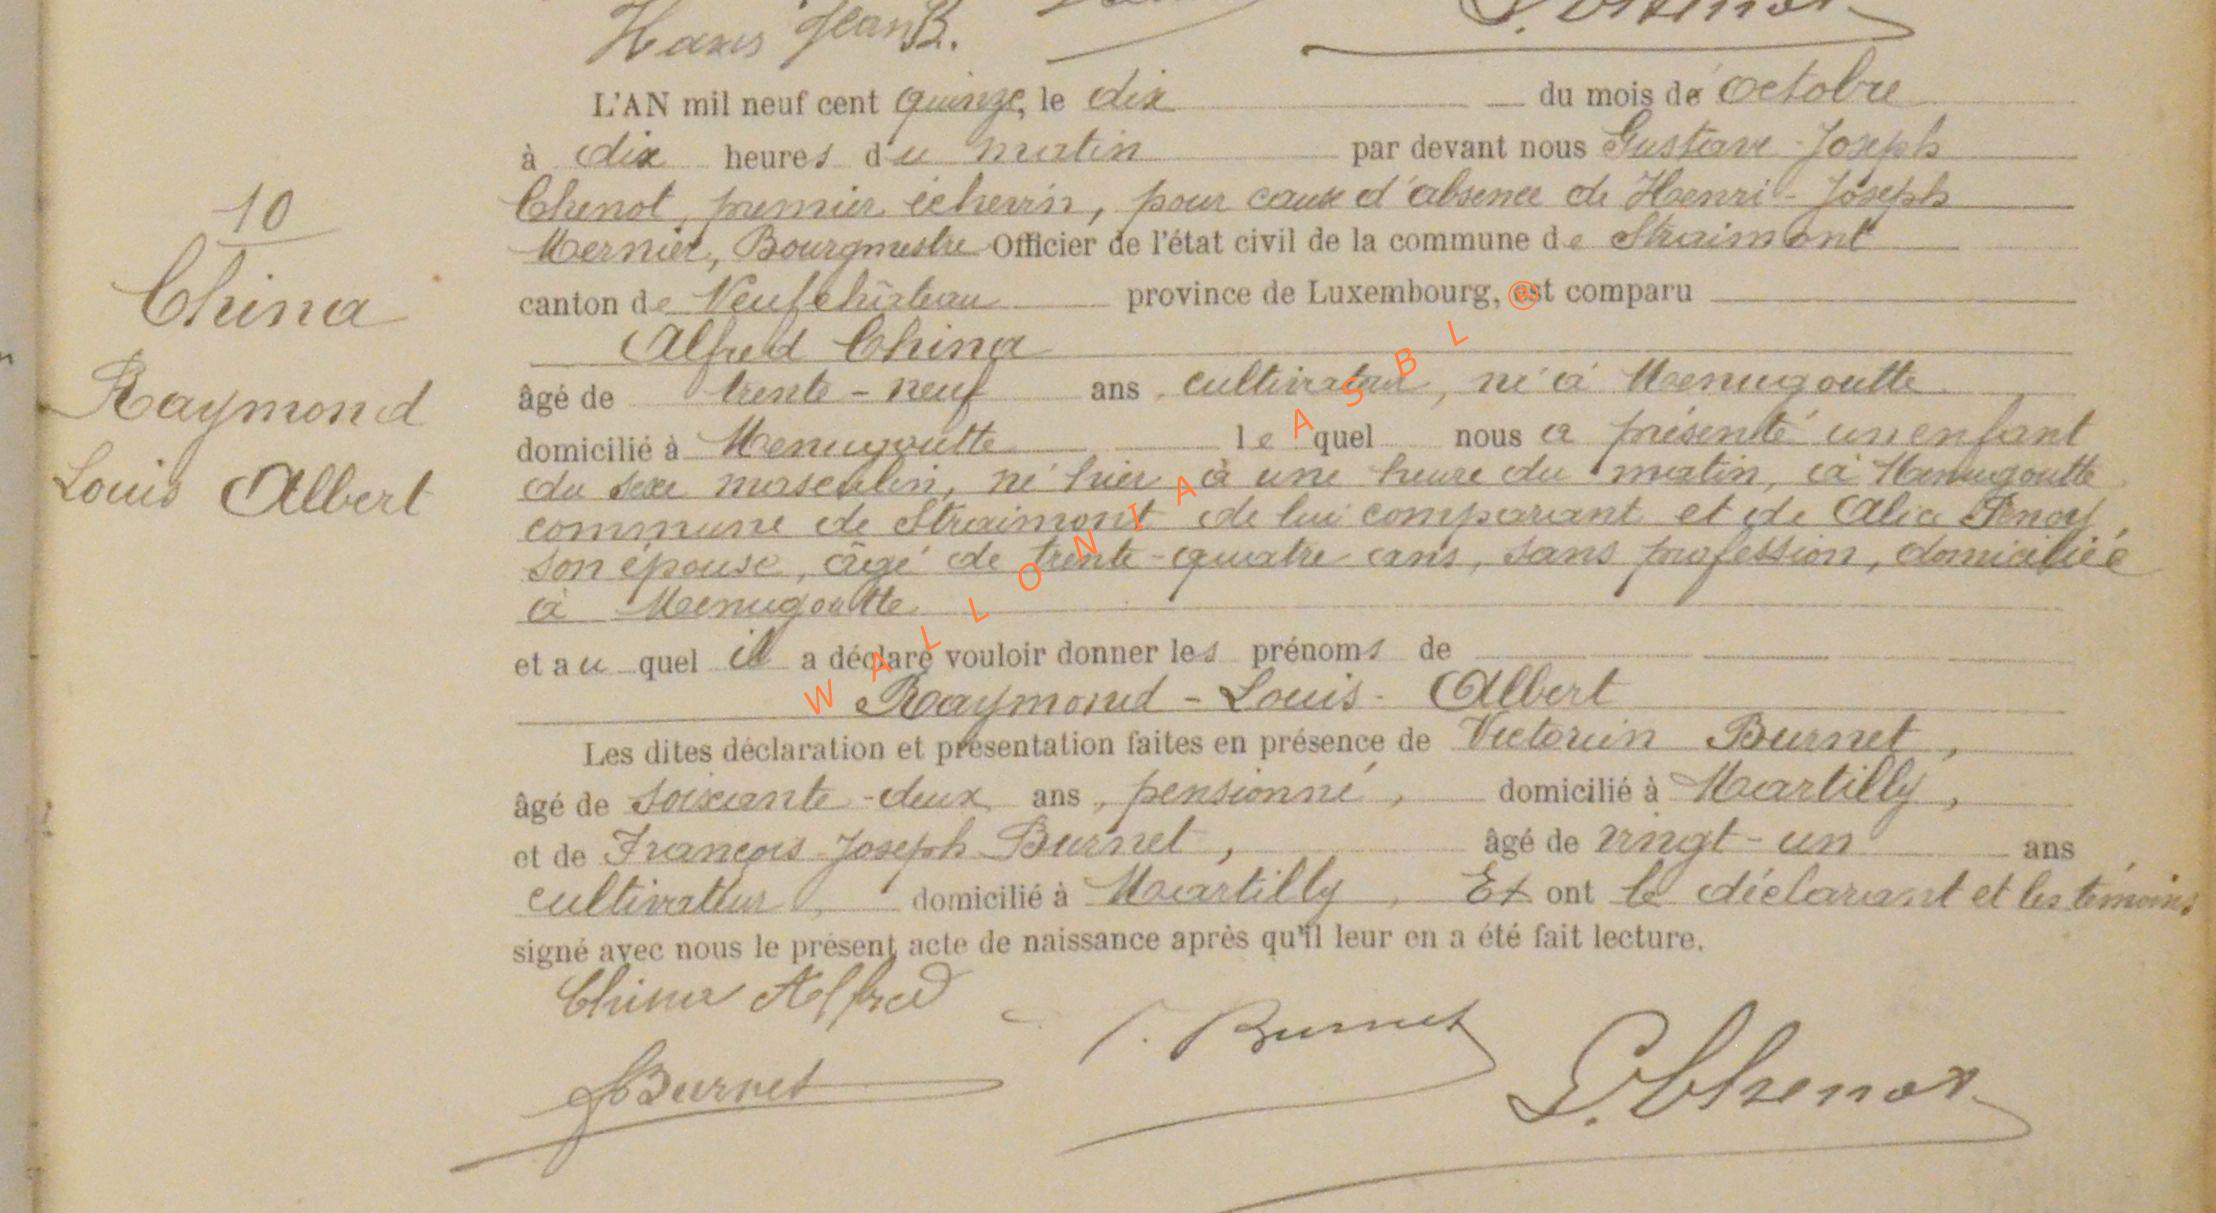 Hans Jean B.
10
China
Raymond
Louis Albert
L'AN mil neuf cent quinze, le dix du mois de octobre
à dix heures du matin par devant nous Gustave Joseph
Chenot, premier échevin, pour cause d'absence de Henri-Joseph
Mernier, Bourgmestre Officier de l'état civil de la commune de Straimont
canton de Neufchâteau province de Luxembourg, est comparu
Alfred China
âgé de trente-neuf ans, cultivateur, né à Menugoutte
domicilié à Menugoutte lequel nous a présenté un enfant
du sexe masculin, né hier à une heure du matin, à Menugoutte
commune de Straimont de lui comparant et de Alia
son épouse, âgé de trente-quatre ans, sans profession, domiciliée
à Menugoutte
et au quel il a déclaré vouloir donner les prénoms de
Raymond-Louis-Albert
Les dites déclaration et présentation faites en présence de Victorien Burnet,
âgé de soixante-deux ans, pensionné, domicilié à Martilly,
et de François-Joseph Burnet, âgé de vingt-un ans
cultivateur, domicilié à Martilly, Et ont le déclarant et les témoins
signé avec nous le présent acte de naissance après qu'il leur en a été fait lecture.
China Alfred
V. Burnet
Burnet
G. Chenot
WALLONIA ASBL @